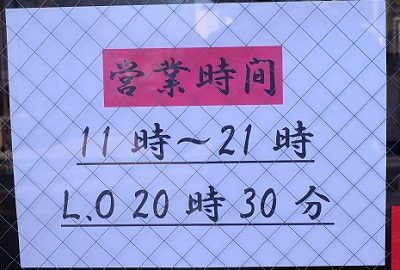 営業時間
11時～21時
L.O 20時30分